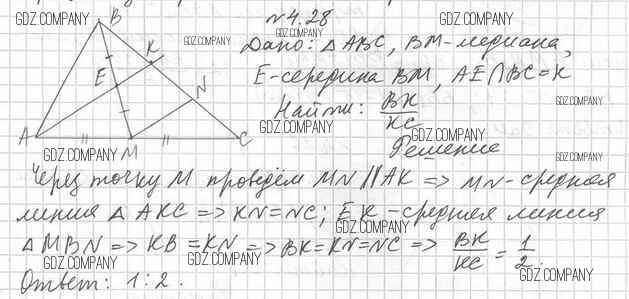 №4.28
Дано: △ABC, BM-медиана,
E-середина BM, AE∩BC=K
Найти: BK/KC
Решение
Через точку M проведём MN || AK => MN-средняя
линия △ AKC => KN=NC; EK-средняя линия
△ MBN => KB=KN => BK=KN=NC => BK/KC = 1/2.
Ответ: 1:2.
B
K
E
N
A
M
C
GDZ.COMPANY
GDZ.COMPANY
GDZ.COMPANY
GDZ.COMPANY
GDZ.COMPANY
GDZ.COMPANY
GDZ.COMPANY
GDZ.COMPANY
GDZ.COMPANY
GDZ.COMPANY
GDZ.COMPANY
GDZ.COMPANY
GDZ.COMPANY